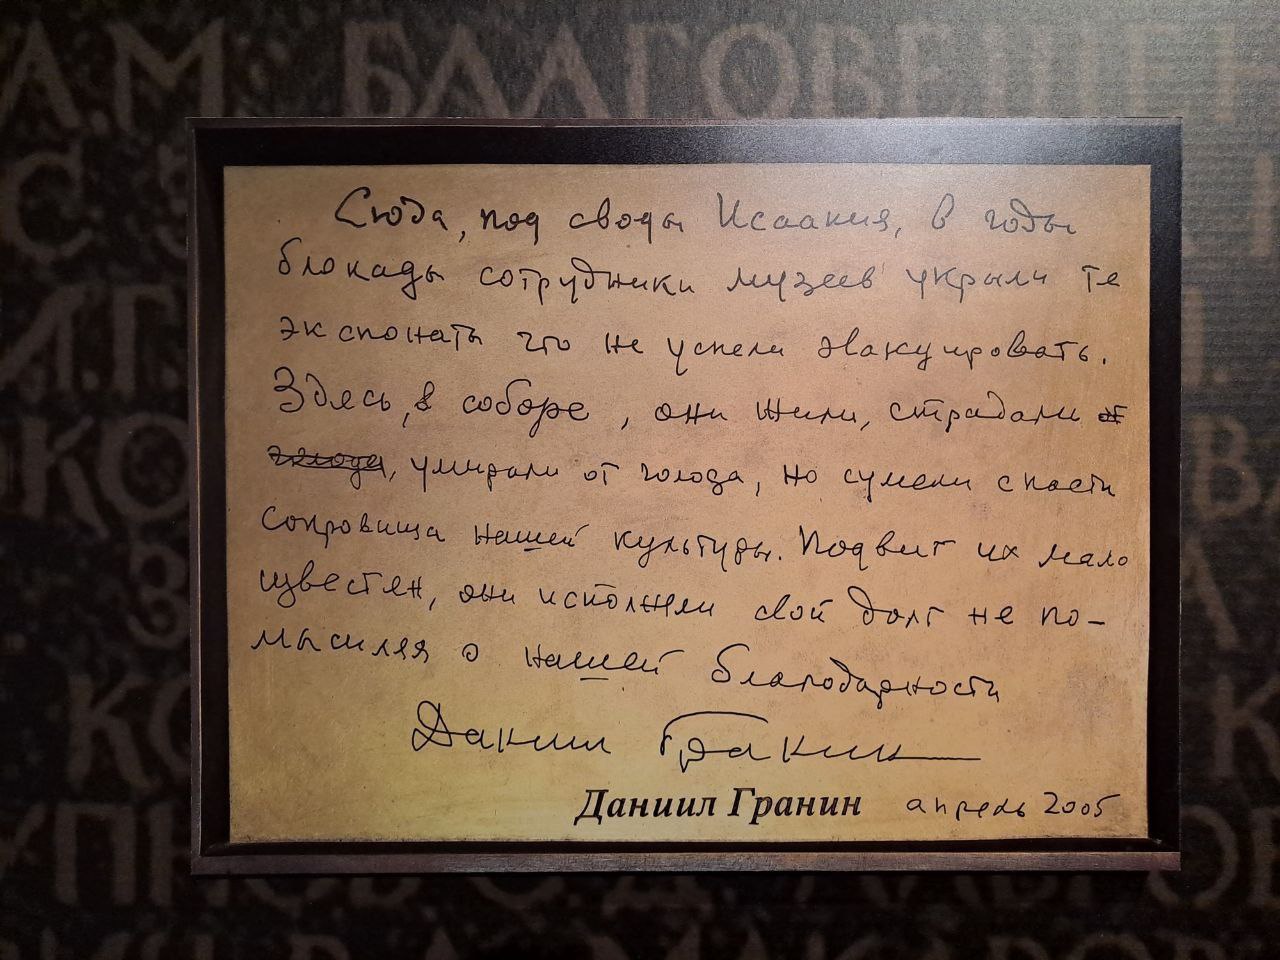 А.М. БЛАГОВЕЩЕН
Сюда, под своды Исаакия, в годы
блокады сотрудники музеев укрыли те
экспонаты что не успели эвакуировать.
Здесь, в соборе, они жили, страдали от
голода, умирали от голода, но сумели спасти
сокровища нашей культуры. Подвиг их мало
известен, они исполняли свой долг не по-
мышляя о нашей благодарности
Даниил Гранин
Даниил Гранин апрель 2005